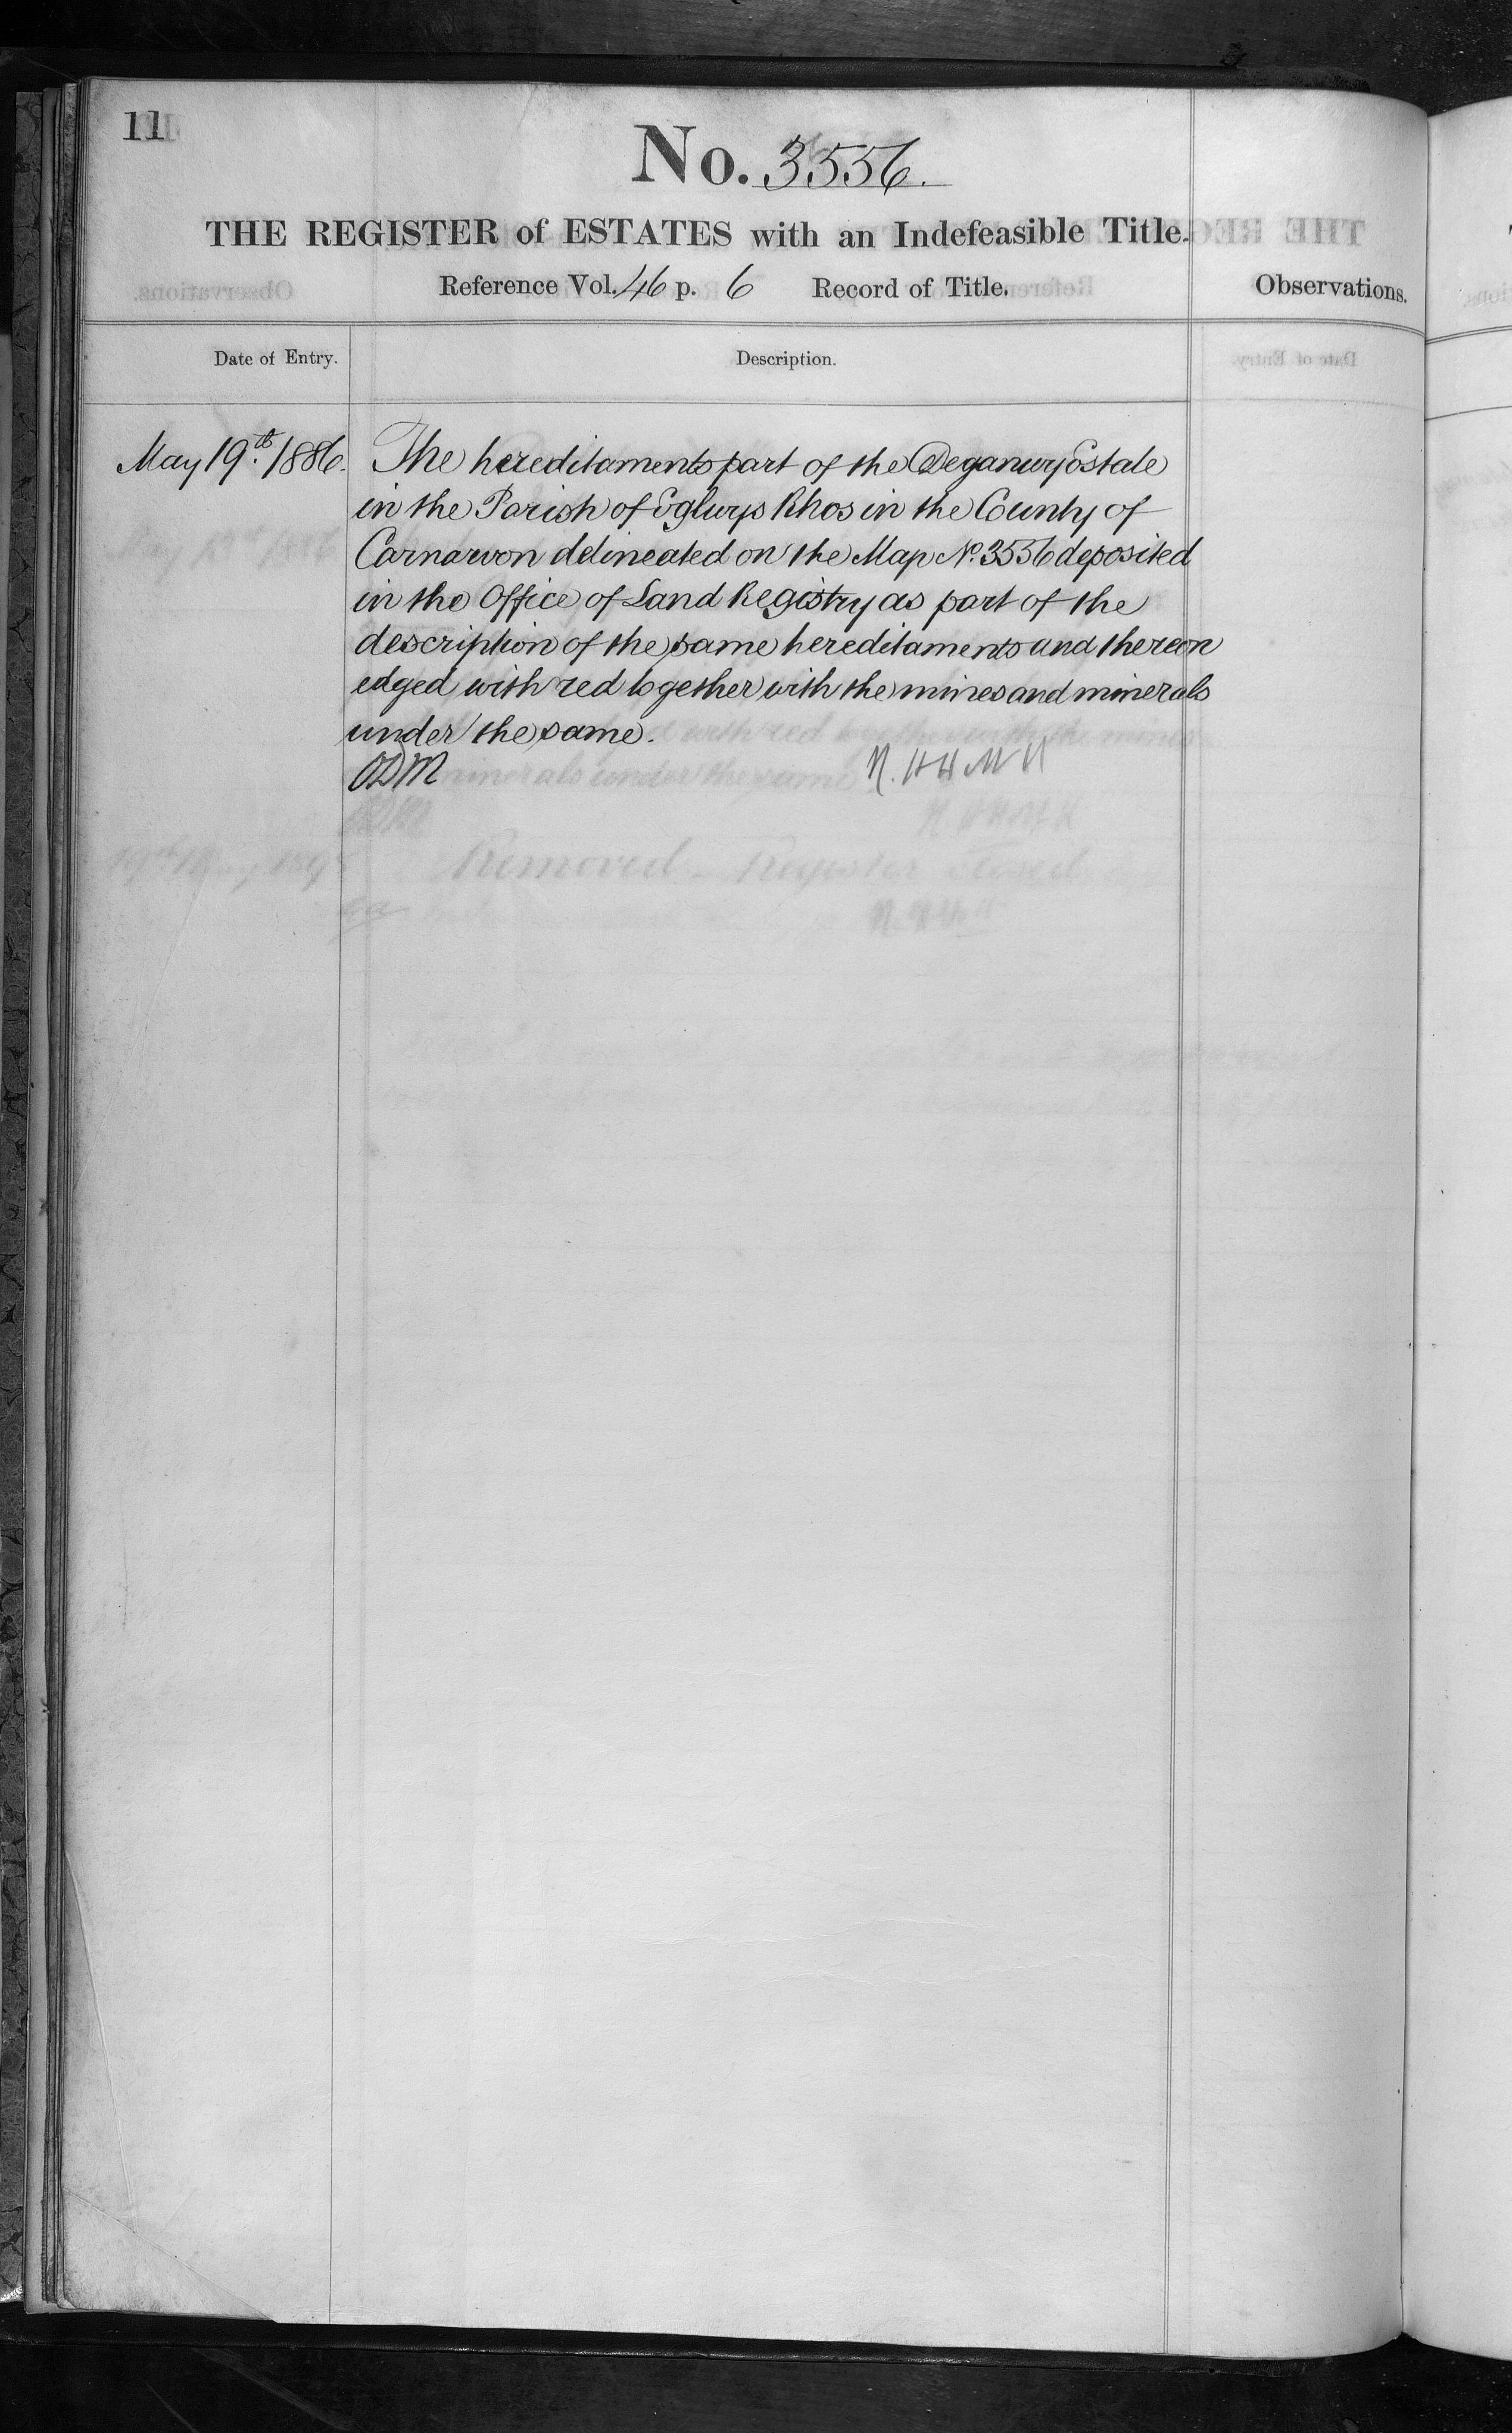 11
No. 3556.
THE REGISTER of ESTATES with an Indefeasible Title.
Reference Vol. 46 p. 6 Record of Title.
Observations.
Date of Entry.
Description.
May 19th. 1886. The hereditaments part of the Deganwy Estate
in the Parish of Eglwys Rhos in the County of
Carnarvon delineated on the Map No. 3556 deposited
in the Office of Land Registry as part of the
description of the same hereditaments and thereon
edged with red together with the mines and minerals
under the same.